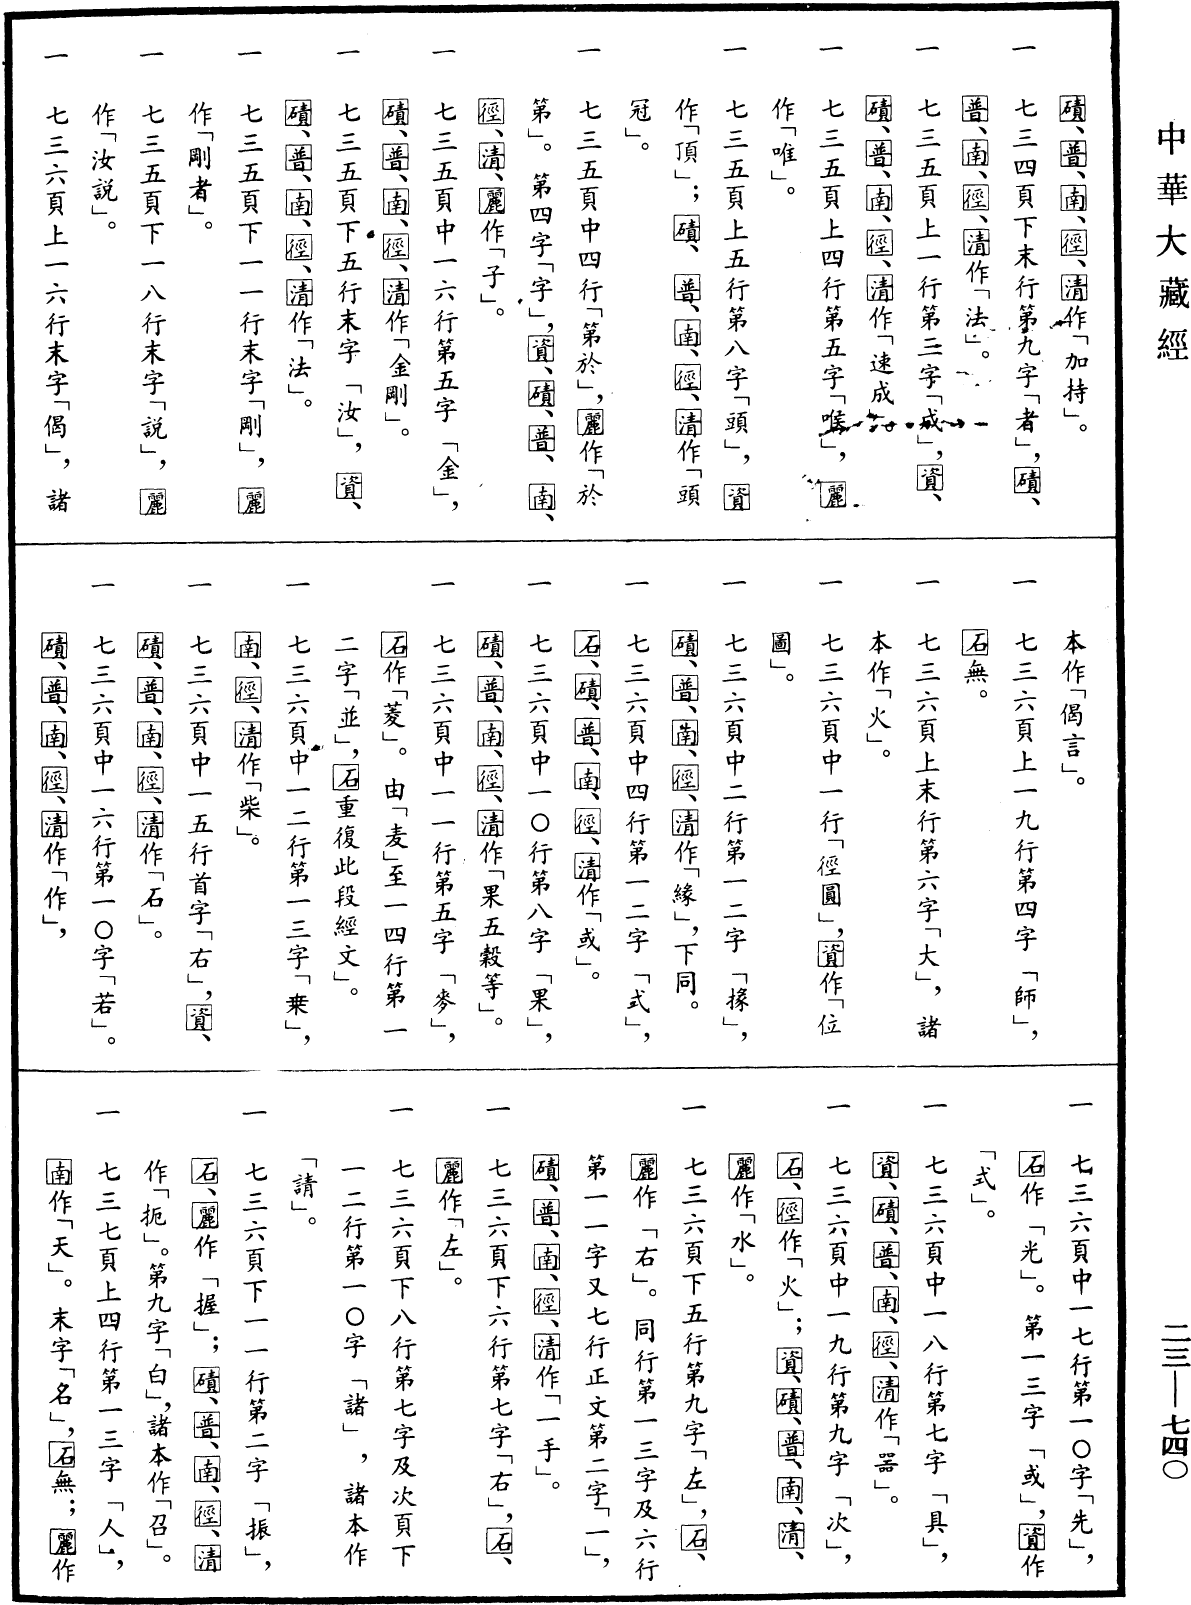 中華大藏經
磧、普、南、徑、清作「加持」。
一 七三四頁下末行第九字「者」，磧、
普、南、徑、清作「法」。
一 七三五頁上一行第三字「成」，資、
磧、普、南、徑、清作「速成」。
一 七三五頁上四行第五字「喉」，麗
作「唯」。
一 七三五頁上五行第八字「頭」，資
作「頂」；磧、普、南、徑、清作「頭
冠」。
一 七三五頁中四行「第於」，麗作「於
第」。第四字「字」，資、磧、普、南、
徑、清、麗作「子」。
一 七三五頁中一六行第五字「金」，
磧、普、南、徑、清作「金剛」。
一 七三五頁下五行末字「汝」，資、
磧、普、南、徑、清作「法」。
一 七三五頁下一一行末字「剛」，麗
作「剛者」。
一 七三五頁下一八行末字「説」，麗
作「汝説」。
一 七三六頁上一六行末字「偈」，諸
本作「偈言」。
一 七三六頁上一九行第四字「師」，
石無。
一 七三六頁上末行第六字「大」，諸
本作「火」。
一 七三六頁中一行「徑圓」，資作「位
圖」。
一 七三六頁中二行第一二字「掾」，
磧、普、南、徑、清作「緣」，下同。
一 七三六頁中四行第一二字「式」，
石、磧、普、南、徑、清作「或」。
一 七三六頁中一〇行第八字「果」，
磧、普、南、徑、清作「果五穀等」。
一 七三六頁中一一行第五字「麥」，
石作「菱」。由「麦」至一四行第一
二字「並」，石重復此段經文」。
一 七三六頁中一二行第一三字「乗」，
南、徑、清作「柴」。
一 七三六頁中一五行首字「右」，資、
磧、普、南、徑、清作「石」。
一 七三六頁中一六行第一〇字「若」。
磧、普、南、徑、清作「作」，
一 七三六頁中一七行第一〇字「先」，
石作「光」。第一三字「或」，資作
「式」。
一 七三六頁中一八行第七字「具」，
資、磧、普、南、徑、清作「器」。
一 七三六頁中一九行第九字「次」，
石、徑作「火」；資、磧、普、南、清、
麗作「水」。
一 七三六頁下五行第九字「左」，石、
麗作「右」。同行第一三字及六行
第一一字又七行正文第二字「一」，
磧、普、南、徑、清作「一手」。
一 七三六頁下六行第七字「右」，石、
麗作「左」。
一 七三六頁下八行第七字及次頁下
一二行第一〇字「諸」，諸本作
「請」。
一 七三六頁下一一行第二字「振」，
石、麗作「握」；磧、普、南、徑、清
作「扼」。第九字「白」，諸本作「召」。
一 七三七頁上四行第一三字「人」，
南作「天」。末字「名」，石無；麗作
二三—七四〇